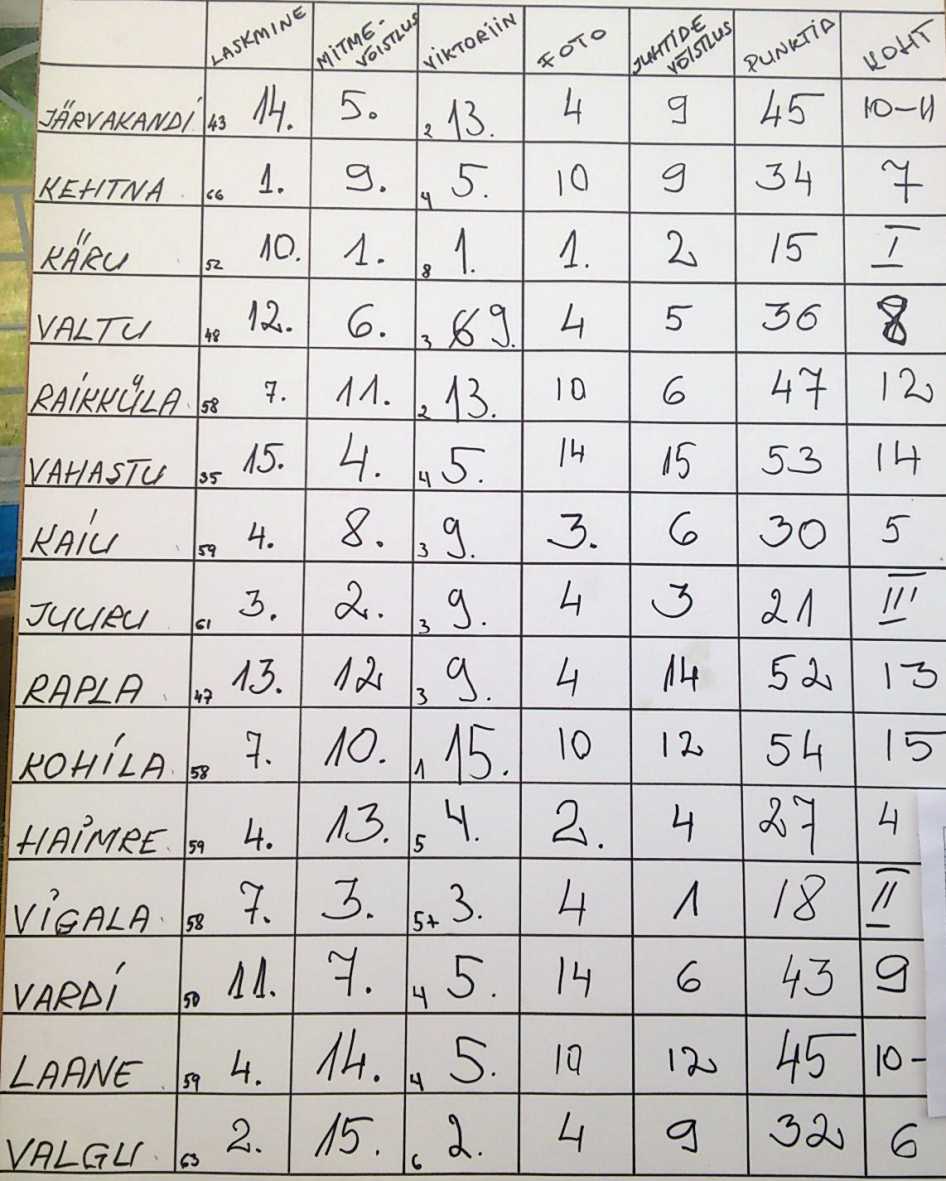 LASKMINE MITME-VÕISTLUS VIKTORIIN FOTO JUHTIDE VÕISTLUS PUNKTID KOHT
JÄRVAKANDI 43 14. 5. 2 13. 4 9 45 10-11
KEHTNA 66 1. 9. 4 5. 10 9 34 7
KÄRU 52 10. 1. 8 1. 1. 2 15 I
VALTU 48 12. 6. 3 9. 4 5 36 8
RAIKKÜLA 58 7. 11. 2 13. 10 6 47 12
VAHASTU 35 15. 4. 4 5. 14 15 53 14
KAIU 59 4. 8. 3 9. 3. 6 30 5
JUURU 61 3. 2. 3 9. 4 3 21 III
RAPLA 47 13. 12 3 9. 4 14 52 13
KOHILA 58 7. 10. 1 15. 10 12 54 15
HAIMRE 59 4. 13. 5 4. 2. 4 27 4
VIGALA 58 7. 3. 5+ 3. 4 1 18 II
VARDI 50 11. 7. 4 5. 14 6 43 9
LAANE 59 4. 14. 4 5. 10 12 45 10-
VALGU 63 2. 15. 6 2. 4 9 32 6